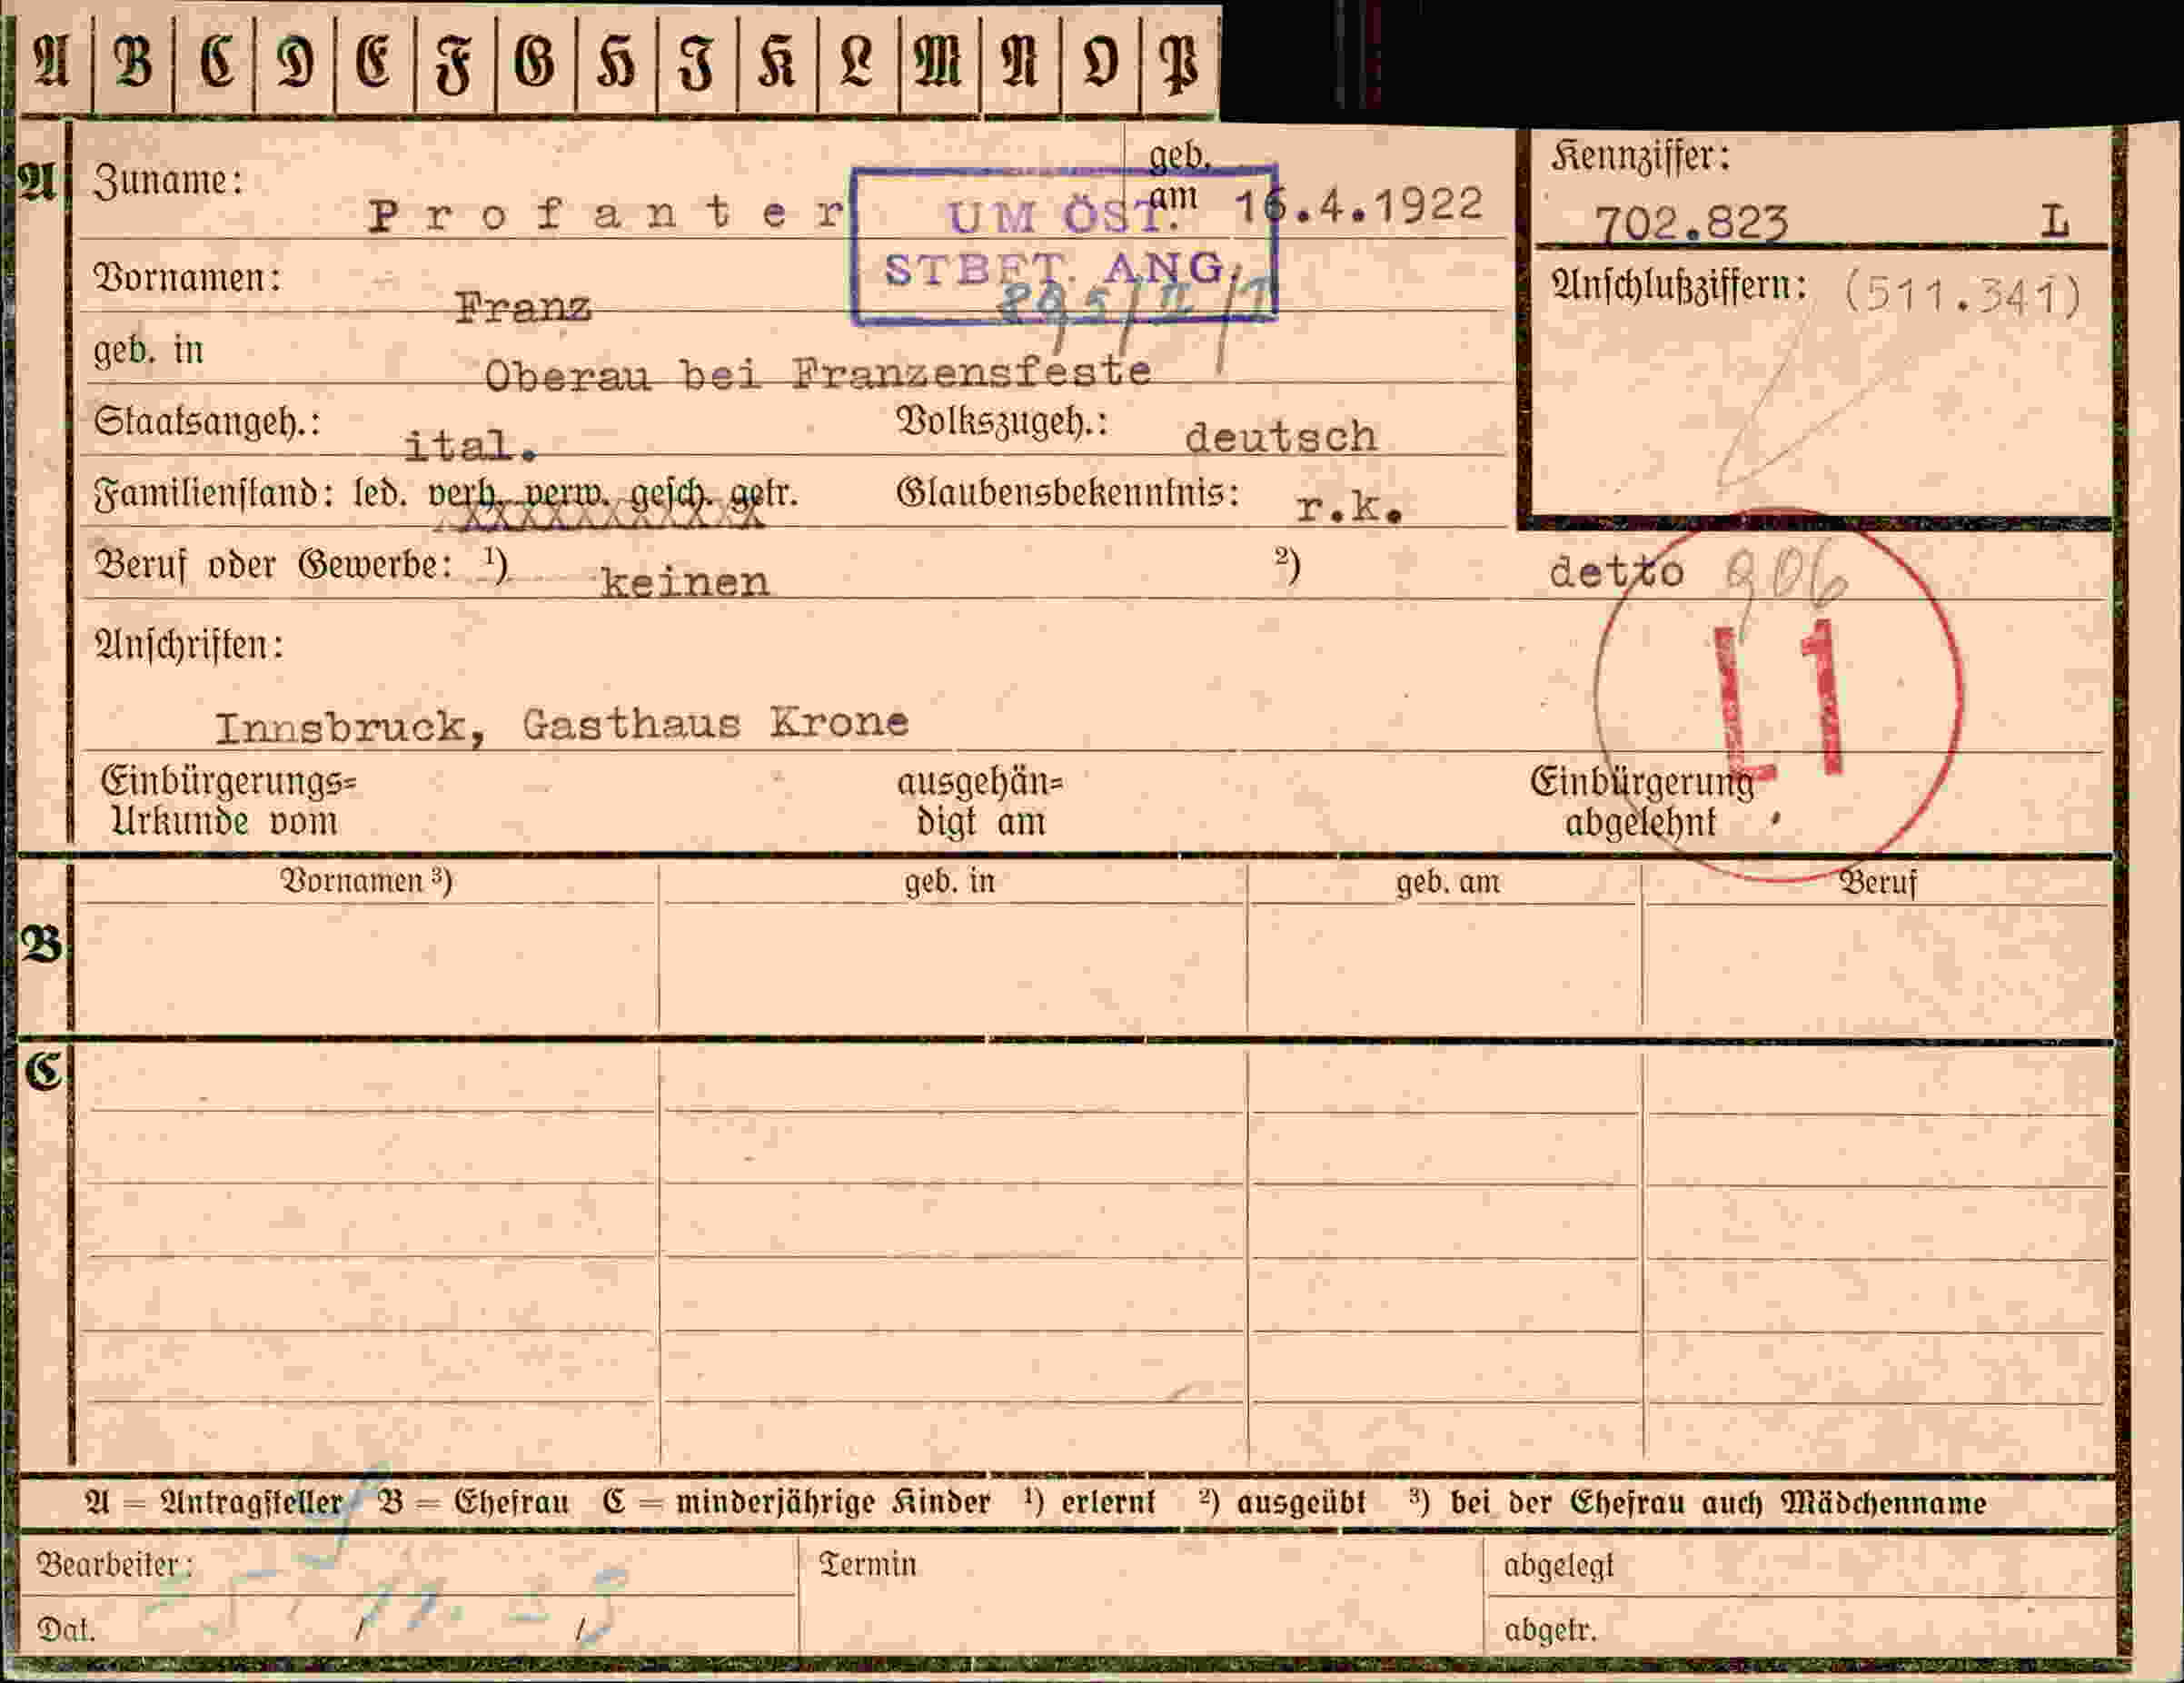 A B C D E F G H I K L M N O P
A Zuname: Profanter geb. am 16.4.1922
UM ÖST.
STBET. ANG.
Kennziffer:
702.823 L
Vornamen: Franz
Anschlußziffern: (511.341)
geb. in Oberau bei Franzensfeste
Staatsangeh.: ital. Volkszugeh.: deutsch
Familienstand: led. verh. verw. gesch. getr. Glaubensbekenntnis: r.k.
Beruf oder Gewerbe: ¹) keinen ²) detto 906
L1
Anschriften:
Innsbruck, Gasthaus Krone
Einbürgerungs= ausgehän= Einbürgerung
Urkunde vom digt am abgelehnt
Vornamen ³) geb. in geb. am Beruf
B
C
A = Antragsteller B = Ehefrau C = minderjährige Kinder ¹) erlernt ²) ausgeübt ³) bei der Ehefrau auch Mädchenname
Bearbeiter: Termin abgelegt
Dat. abgetr.